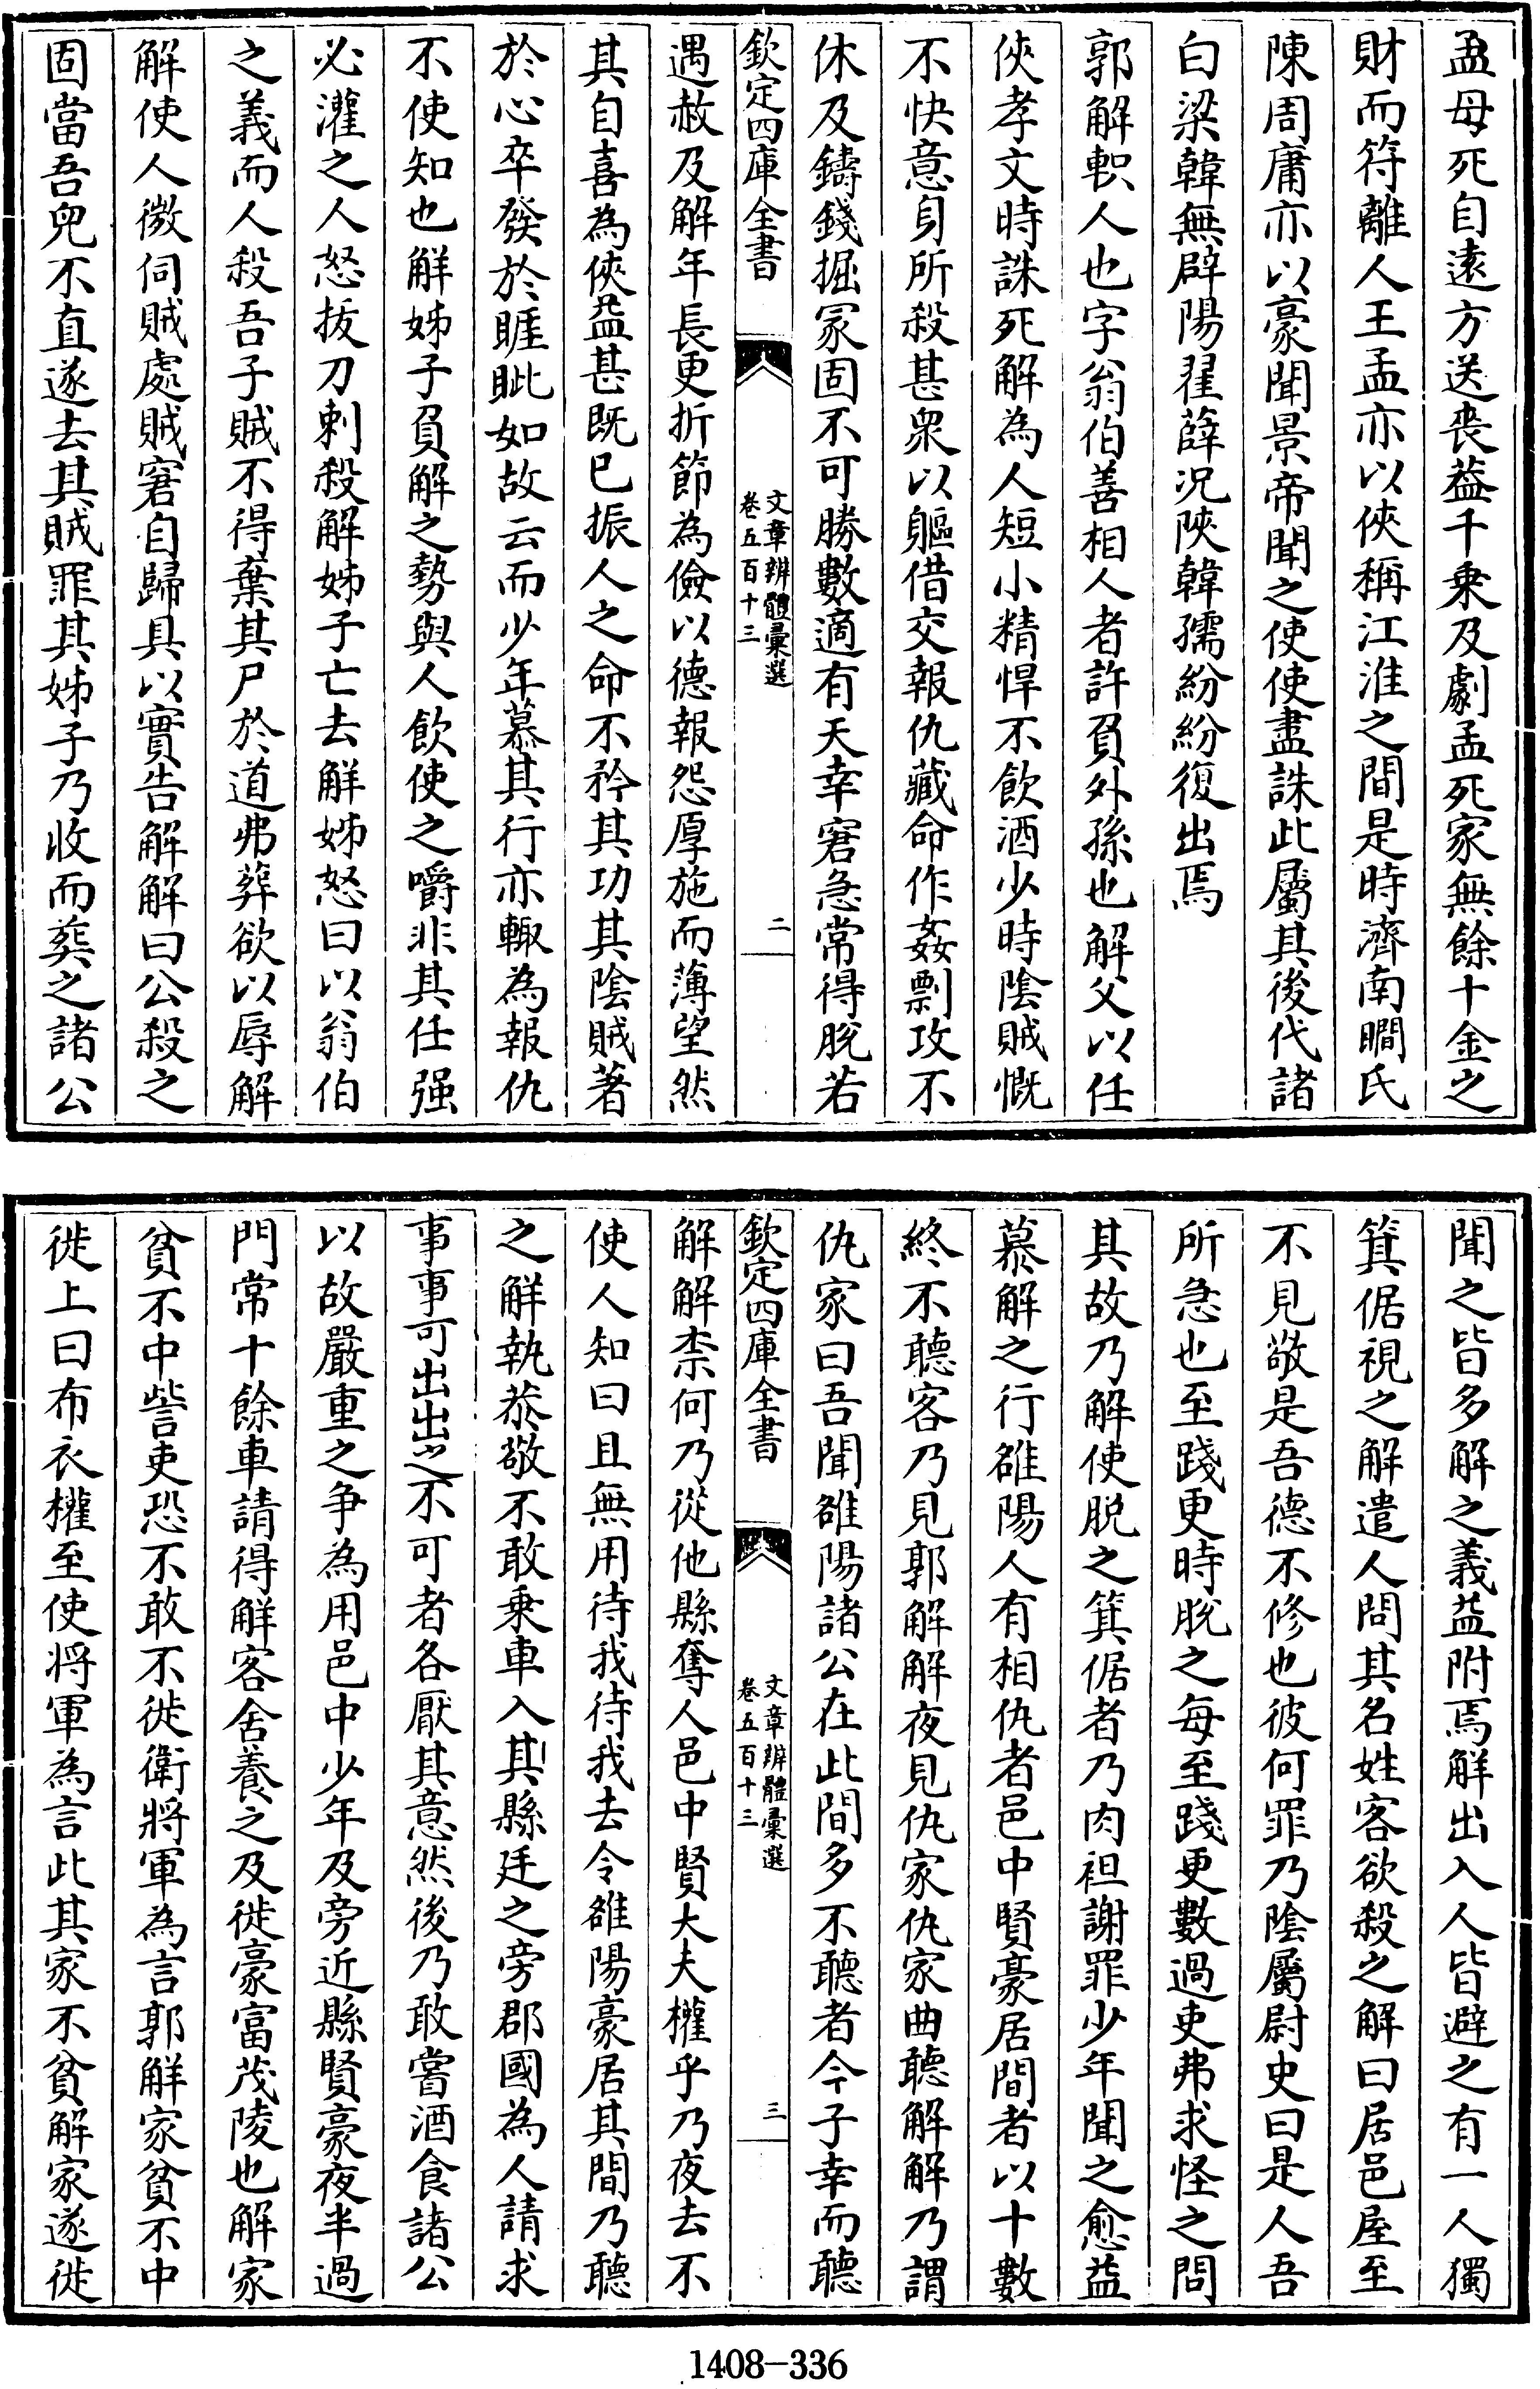 孟母死自遠方送喪葢千乗及劇孟死家無餘十金之
財而符離人王孟亦以俠稱江淮之間是時濟南瞯氏
陳周庸亦以豪聞景帝聞之使使盡誅此屬其後代諸
白梁韓無辟陽翟薛况陜韓孺紛紛復出焉
郭解軹人也字翁伯善相人者許負外孫也解父以任
俠孝文時誅死解為人短小精悍不飲酒少時陰賊慨
不快意身所殺甚衆以軀借交報仇藏命作姦剽攻不
休及鑄錢掘冡固不可勝數適有天幸窘急常得脫若
欽定四庫全書
文章辨體彚選
卷五百十三
二
遇赦及解年長更折節為儉以德報怨厚施而薄望然
其自喜為俠益甚既已振人之命不矜其功其陰賊著
於心卒發於睚眦如故云而少年慕其行亦輙為報仇
不使知也解姊子負解之勢與人飲使之嚼非其任强
必灌之人怒拔刀刺殺解姊子亡去解姊怒曰以翁伯
之義而人殺吾子賊不得棄其尸於道弗葬欲以辱解
解使人微伺賊處賊窘自歸具以實告解解曰公殺之
固當吾兒不直遂去其賊罪其姊子乃收而葬之諸公
聞之皆多解之義益附焉解出入人皆避之有一人獨
箕倨視之解遣人問其名姓客欲殺之解曰居邑屋至
不見敬是吾德不修也彼何罪乃陰屬尉史曰是人吾
所急也至踐更時脫之每至踐更數過吏弗求怪之問
其故乃解使脫之箕倨者乃肉袒謝罪少年聞之愈益
慕解之行雒陽人有相仇者邑中賢豪居間者以十數
終不聽客乃見郭解解夜見仇家仇家曲聽解解乃謂
仇家曰吾聞雒陽諸公在此間多不聽者今子幸而聽
欽定四庫全書
文章辨體彚選
卷五百十三
三
解解柰何乃從他縣奪人邑中賢大夫權乎乃夜去不
使人知曰且無用待我待我去令雒陽豪居其間乃聽
之解執恭敬不敢乗車入其縣廷之旁郡國為人請求
事事可出出之不可者各厭其意然後乃敢嘗酒食諸公
以故嚴重之争為用邑中少年及旁近縣賢豪夜半過
門常十餘車請得解客舍養之及徙豪富茂陵也解家
貧不中訾吏恐不敢不徙衛將軍為言郭解家貧不中
徙上曰布衣權至使將軍為言此其家不貧解家遂徙
1408-336